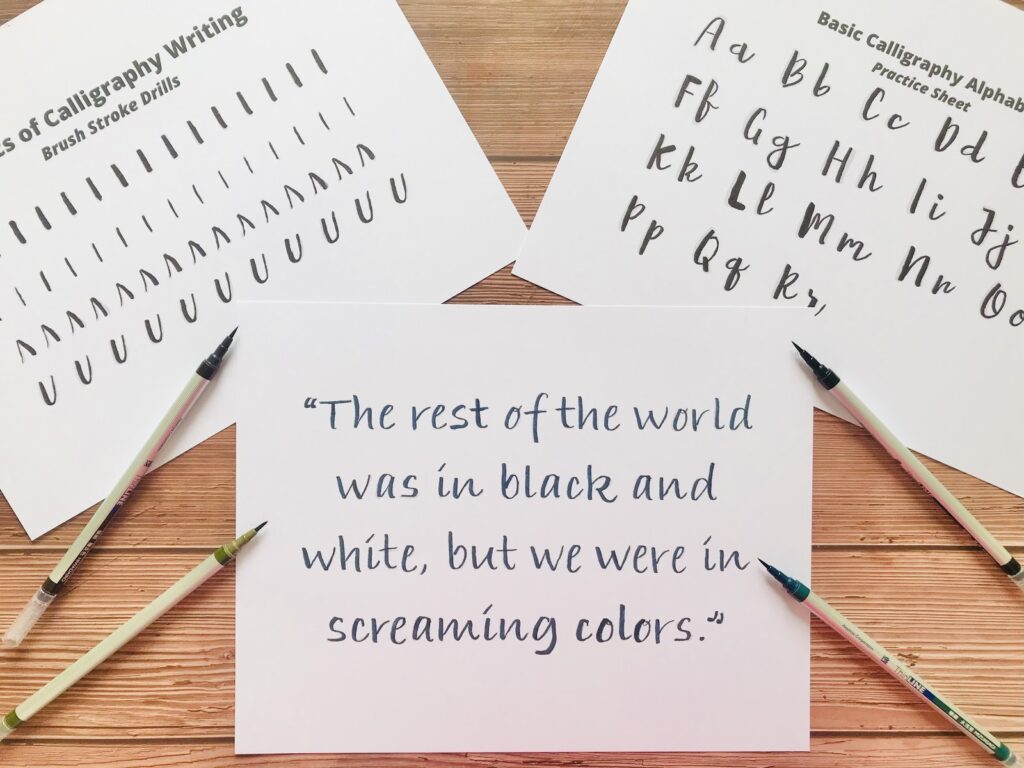 of Calligraphy Writing
Brush Stroke Drills
Basic Calligraphy
Practice Sheet
A a B b C c D d
F f G g H h I i J j
K k L l M m N n O o
P p Q q R r,
“The rest of the world
was in black and
white, but we were in
screaming colors.”